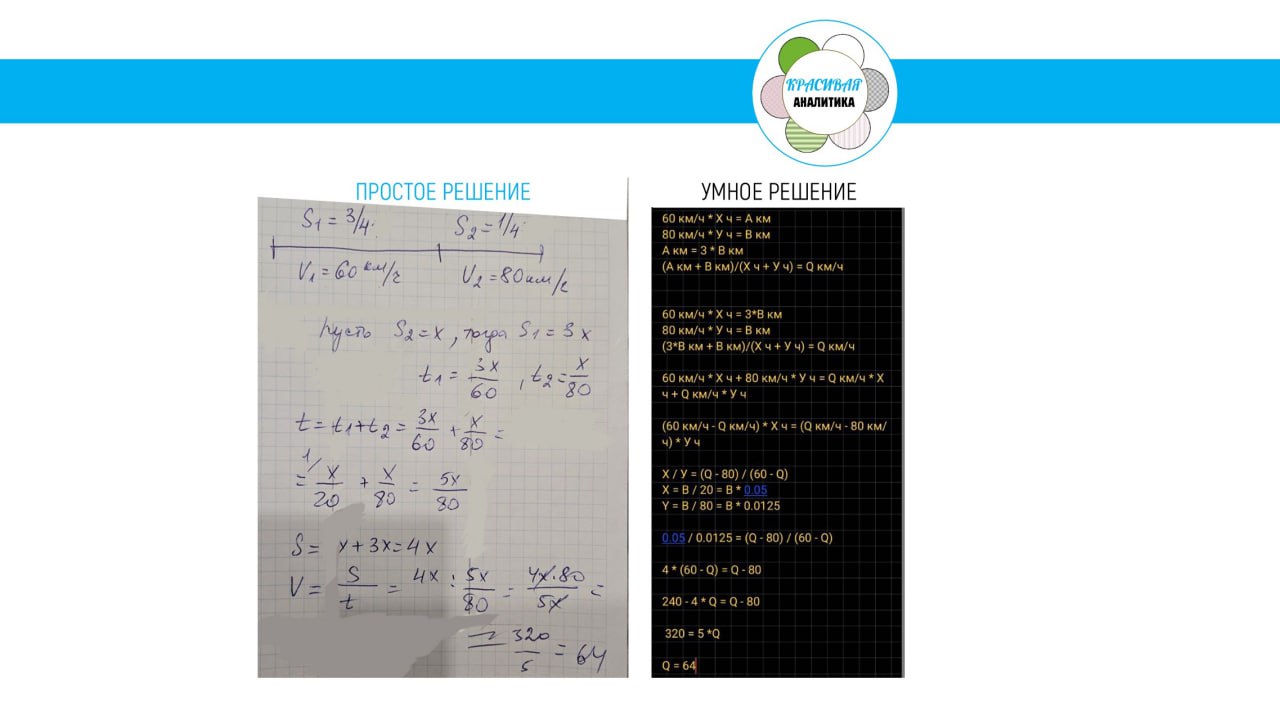 КРАСИВАЯ
АНАЛИТИКА
ПРОСТОЕ РЕШЕНИЕ
S1 = 3/4
S2 = 1/4
V1 = 60 км/ч
V2 = 80 км/ч
пусть S2 = x, тогда S1 = 3x
t1 = 3x/60, t2 = x/80
t = t1 + t2 = 3x/60 + x/80 =
= 1/ x/20 + x/80 = 5x/80
S = x + 3x = 4x
V = S/t = 4x : 5x/80 = 4x·80/5x =
= 320/5 = 64
УМНОЕ РЕШЕНИЕ
60 км/ч * X ч = А км
80 км/ч * У ч = В км
А км = 3 * В км
(А км + В км)/(Х ч + У ч) = Q км/ч
60 км/ч * X ч = 3*В км
80 км/ч * У ч = В км
(3*В км + В км)/(Х ч + У ч) = Q км/ч
60 км/ч * X ч + 80 км/ч * У ч = Q км/ч * X
ч + Q км/ч * У ч
(60 км/ч - Q км/ч) * X ч = (Q км/ч - 80 км/
ч) * У ч
X / У = (Q - 80) / (60 - Q)
X = B / 20 = B * 0.05
Y = B / 80 = B * 0.0125
0.05 / 0.0125 = (Q - 80) / (60 - Q)
4 * (60 - Q) = Q - 80
240 - 4 * Q = Q - 80
320 = 5 *Q
Q = 64